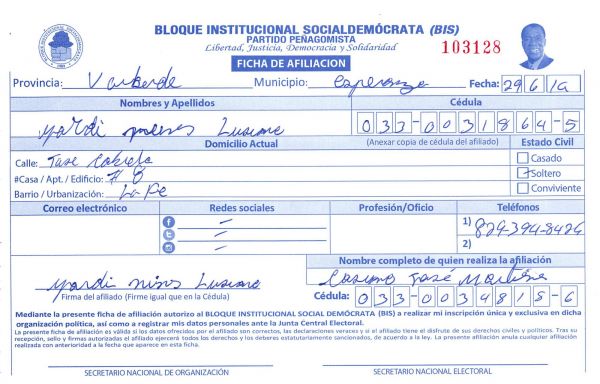 BLOQUE INSTITUCIONAL SOCIALDEMÓCRATA (BIS)
PARTIDO PEÑAGOMISTA
Libertad, Justicia, Democracia y Solidaridad
103128
FICHA DE AFILIACION
Provincia: Valverde Municipio: Esperanza Fecha: 29 6 19
Nombres y Apellidos Cédula
Yardi Luciano 033-0031864-5
Domicilio Actual (Anexar copia de cédula del afiliado) Estado Civil
Calle: Jose Cabrera Casado
#Casa / Apt. / Edificio: # 8 Soltero
Barrio / Urbanización: La Fe Conviviente
Correo electrónico Redes sociales Profesión/Oficio Teléfonos
1) 829-394-8424
2)
Nombre completo de quien realiza la afiliación
Yardi Luciano José
Firma del afiliado (Firme igual que en la Cédula) Cédula: 033-0034818-6
Mediante la presente ficha de afiliación autorizo al BLOQUE INSTITUCIONAL SOCIAL DEMÓCRATA (BIS) a realizar mi inscripción única y exclusiva en dicha
organización política, así como a registrar mis datos personales ante la Junta Central Electoral.
La presente ficha de afiliación es válida si los datos ofrecidos por el afiliado son correctos, las declaraciones veraces y si el afiliado tiene el disfrute de sus derechos civiles y políticos. Tras su
recepción, sello y firmas autorizadas el afiliado ejercerá todos los derechos y los deberes estatutariamente sancionados, de acuerdo a la ley. La presente afiliación anula cualquier afiliación
realizada con anterioridad a la fecha que aparece en esta ficha.
SECRETARIO NACIONAL DE ORGANIZACIÓN SECRETARIO NACIONAL ELECTORAL